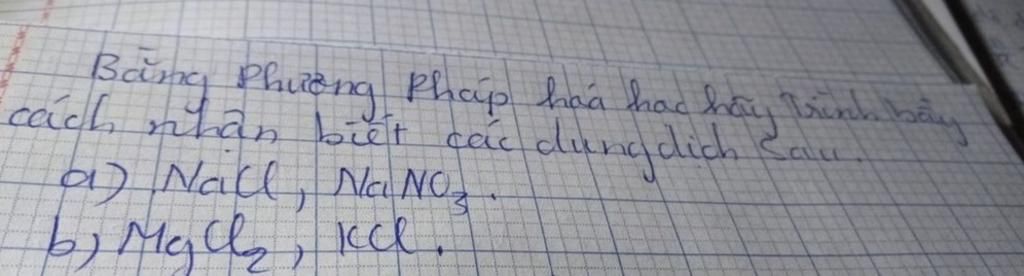 Bằng phương pháp hoá học hãy trình bày
cách nhận biết các dung dịch sau.
a) NaCl, NaNO₃.
b) MgCl₂, KCl.